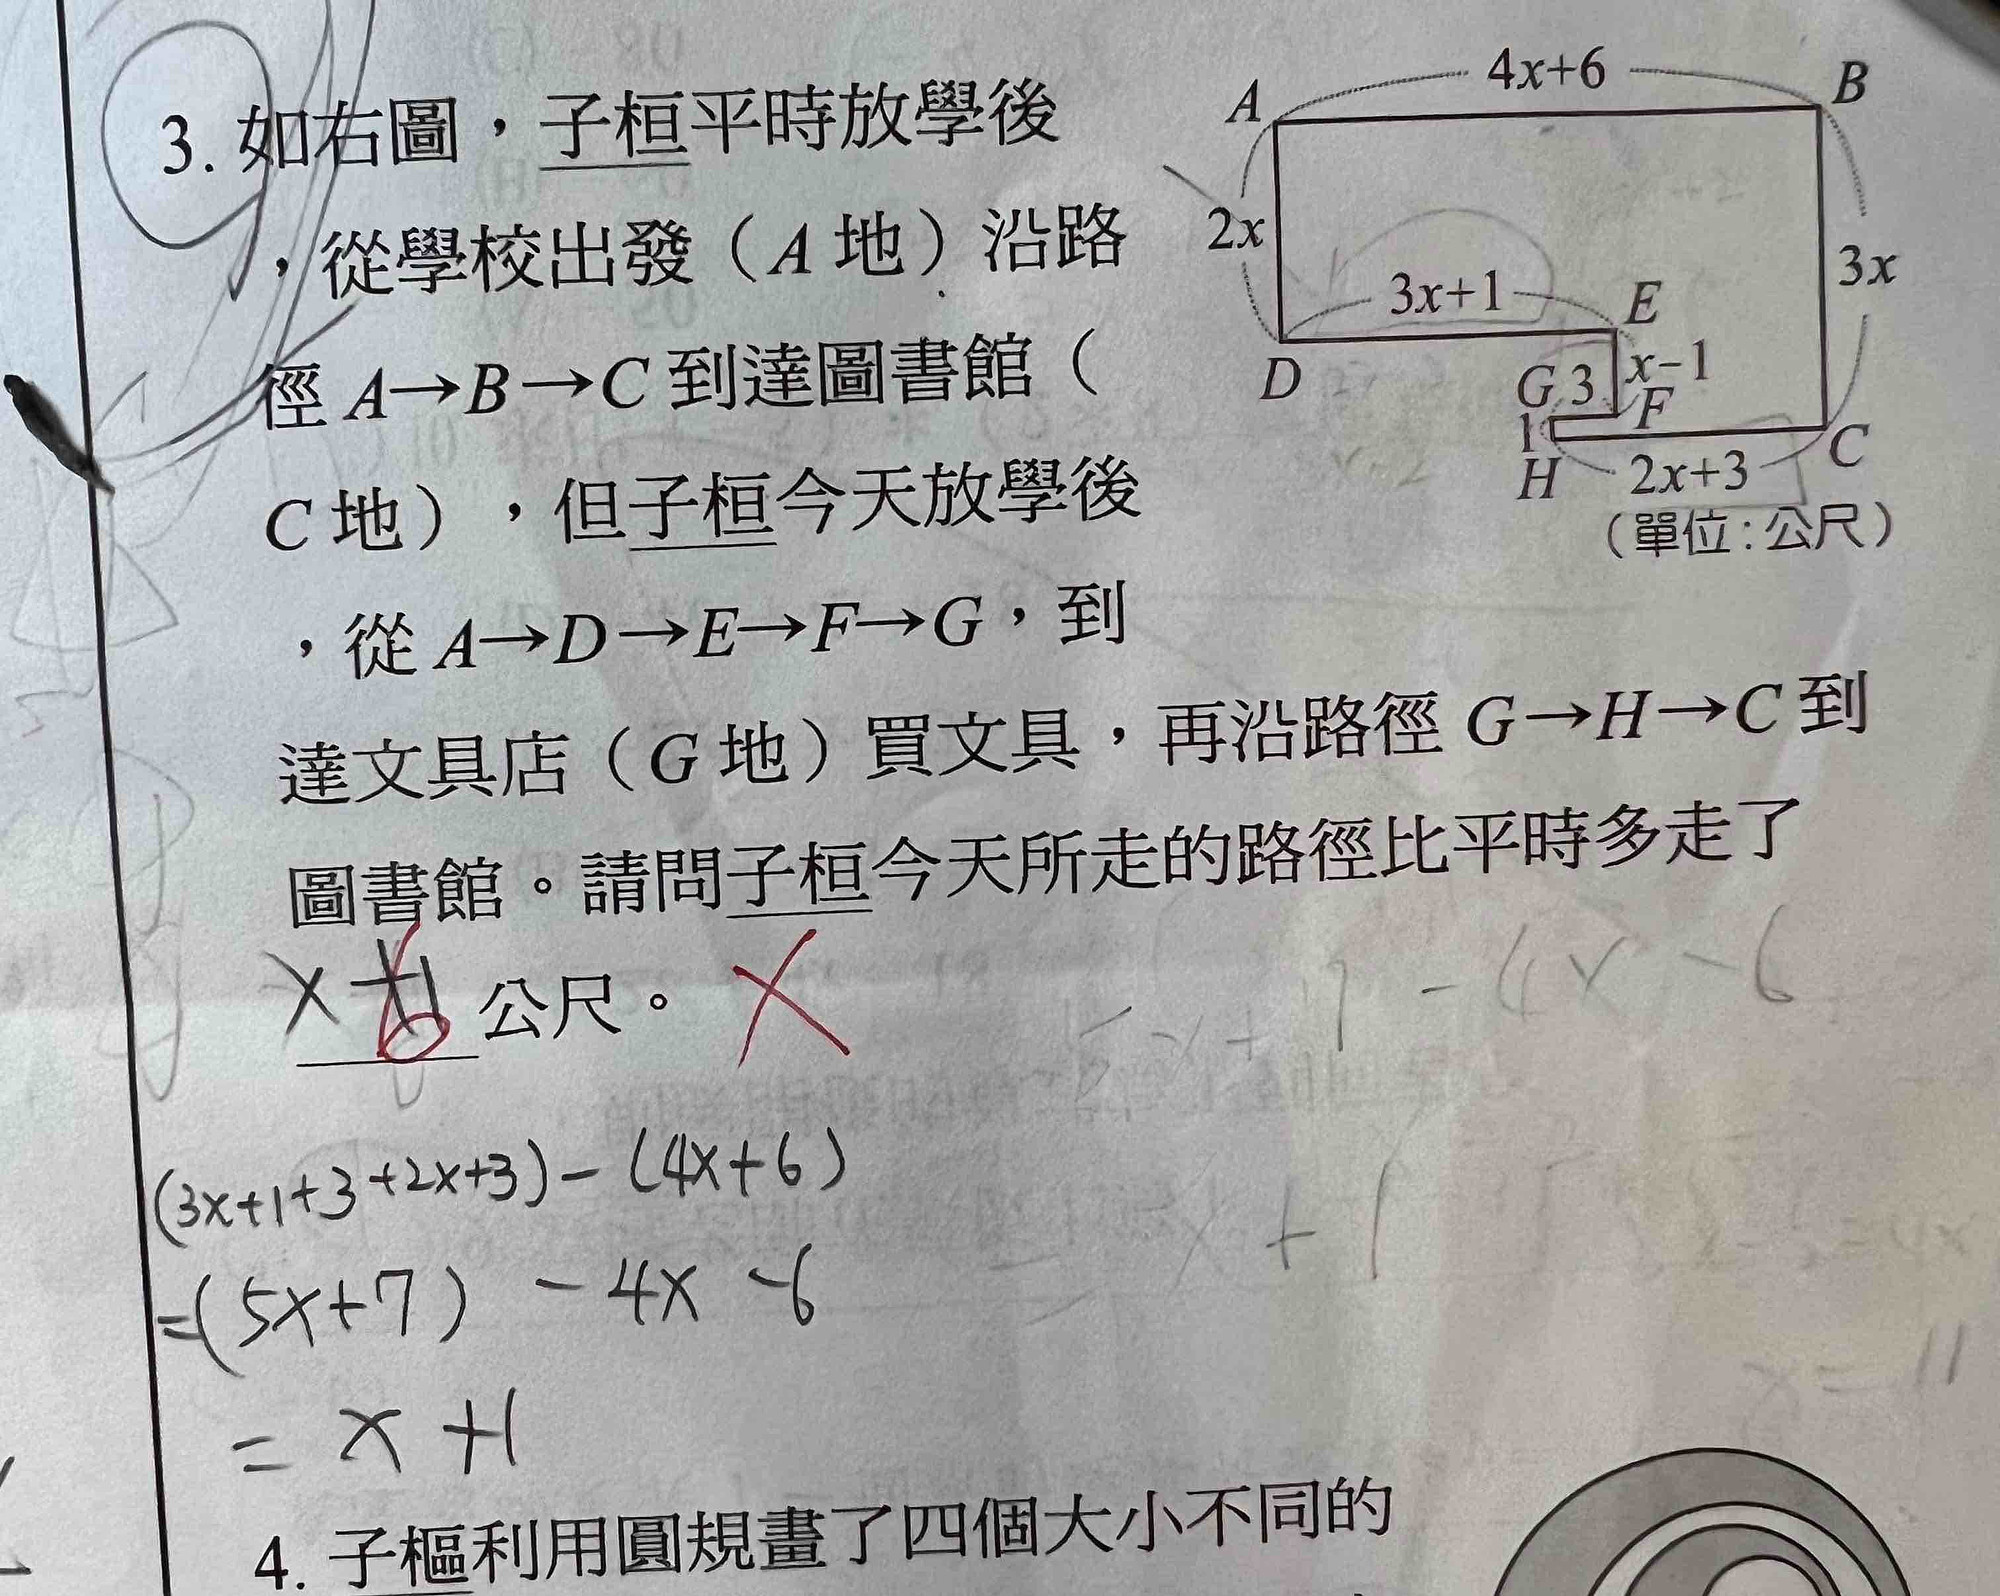 3. 如右圖，子桓平時放學後
，從學校出發（A 地）沿路
徑 A→B→C 到達圖書館（
C 地），但子桓今天放學後
，從 A→D→E→F→G，到
達文具店（G 地）買文具，再沿路徑 G→H→C 到
達圖書館。請問子桓今天所走的路徑比平時多走了
x+1 公尺。
6
(3x+1+3+2x+3)-(4x+6)
=(5x+7) -4x -6
= x+1
A 4x+6 B
2x
3x
3x+1 E
D
G 3 x-1
F
1
H 2x+3 C
(單位:公尺)
5x+7-4x-6
= x+1
4. 子樞利用圓規畫了四個大小不同的